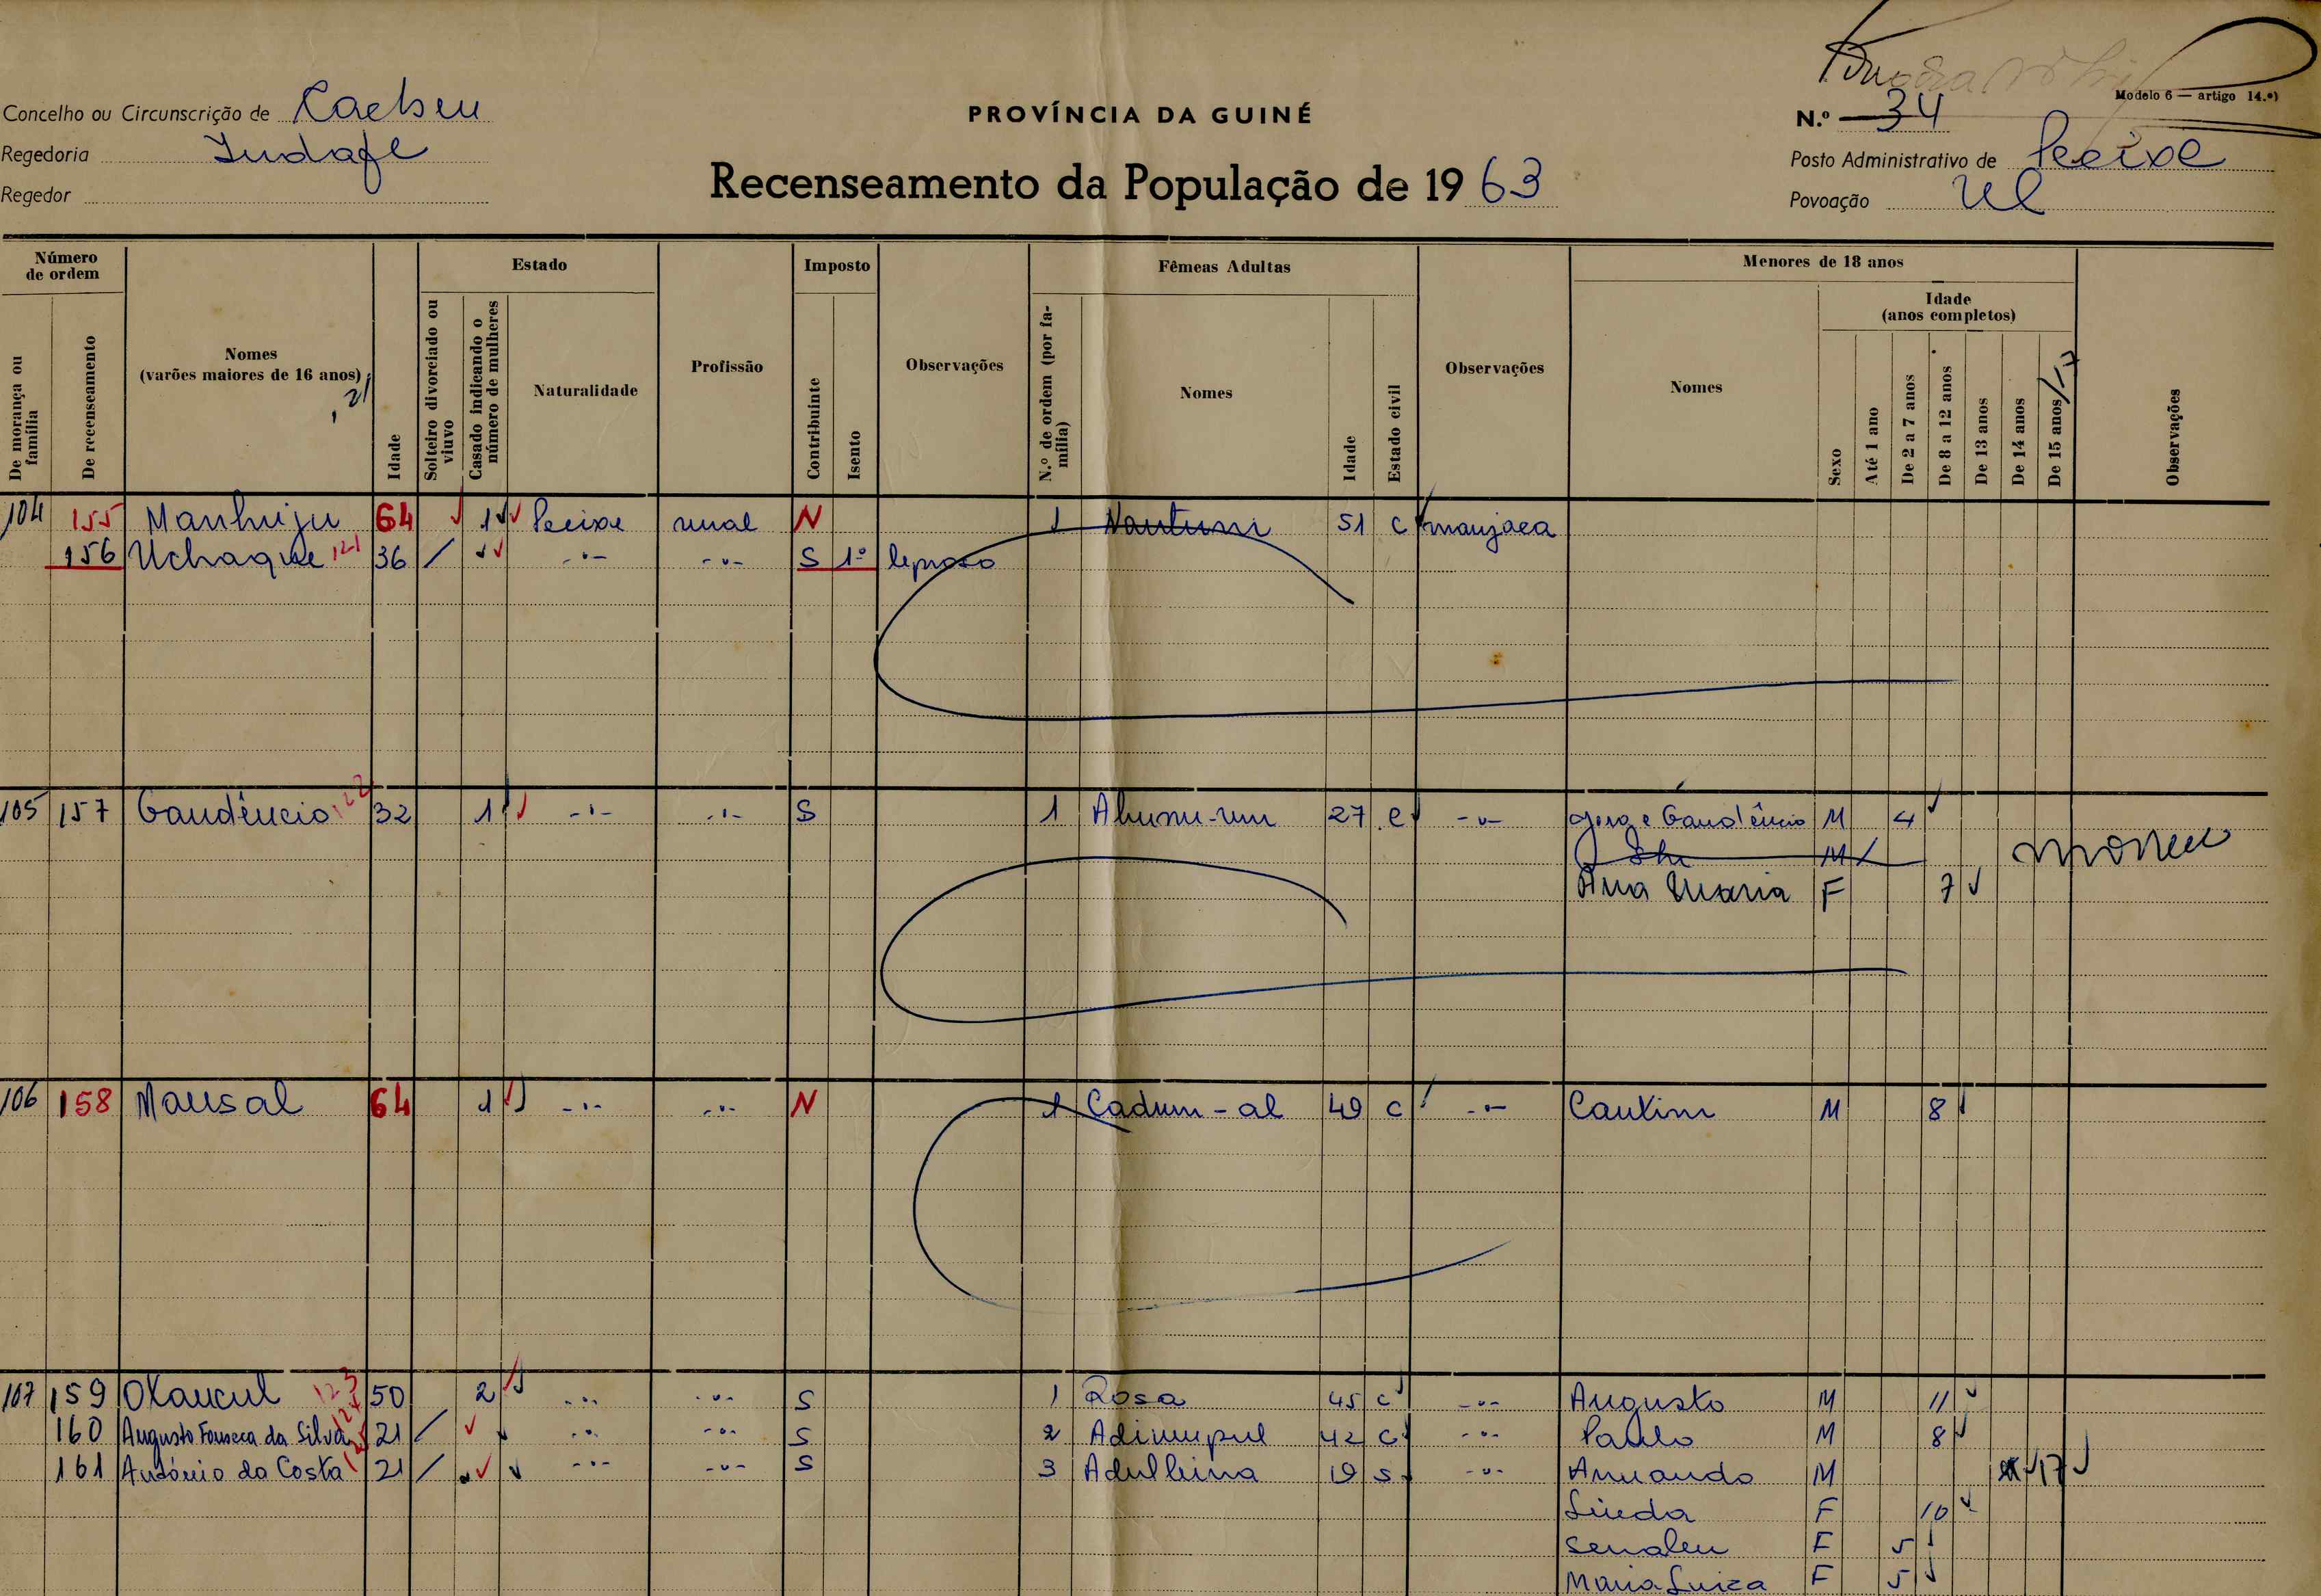 Modelo 6 — artigo 14.º)
Concelho ou Circunscrição de Cacheu
PROVÍNCIA DA GUINÉ
N.º 34
Regedoria
Posto Administrativo de Pecixe
Regedor
Recenseamento da População de 1963
Povoação Ul
Número de ordem
Estado
Imposto
Fêmeas Adultas
Menores de 18 anos
De morança ou família
De recenseamento
Nomes (varões maiores de 16 anos)
Idade
Solteiro divorciado ou viuvo
Casado indicando o número de mulheres
Naturalidade
Profissão
Contribuinte
Isento
Observações
N.º de ordem (por família)
Nomes
Idade
Estado civil
Observações
Nomes
Sexo
Idade (anos completos)
Até 1 ano
De 2 a 7 anos
De 8 a 12 anos
De 13 anos
De 14 anos
De 15 anos /17
Observações
104 155 Manhiju 64 1 Pecixe rural N 1 51 c manjaca
156 Uchaque 121 36 / -"- -"- S 1º leproso
105 157 Gaudêncio 122 32 1 -"- -"- S 1 27 c -"- Jorge Gaudêncio M 4
M morreu
Ana Maria F 7
106 158 Mansal 64 1 -"- -"- N 1 Cadum-al 49 c -"- Cantim M 8
107 159 Otancul 123 50 2 -"- -"- S 1 Rosa 45 c -"- Augusto M 11
160 Augusto Fonseca da Silva 124 21 / -"- -"- S 2 Adimpul 42 c -"- Paulo M 8
161 António da Costa 125 21 / -"- -"- S 3 Adulhina 19 s -"- Armando M 17
F 10
F 5
Maria Luiza F 5